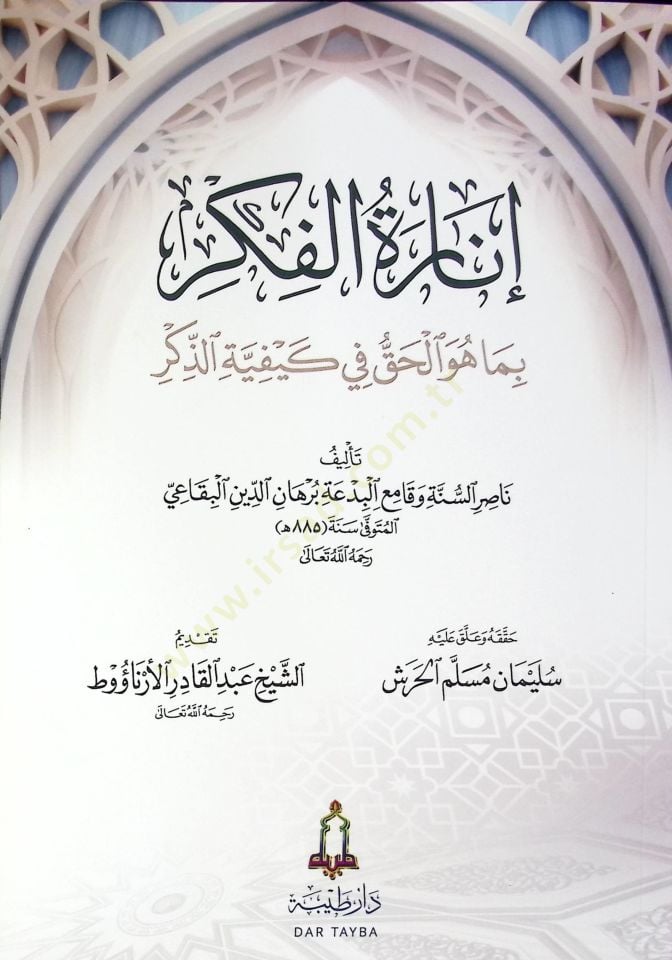 إنارة الفكر
بِمَا هُوَ الْحَقُّ فِي كَيْفِيَّةِ الذِّكْرِ
تَأْلِيفُ
نَاصِرِ السُّنَّةِ وَقَامِعِ الْبِدْعَةِ بُرْهَانِ الدِّينِ الْبِقَاعِيِّ
المُتَوَفَّى سَنَة (٨٨٥هـ)
رَحِمَهُ اللَّهُ تَعَالَى
حَقَّقَهُ وَعَلَّقَ عَلَيْهِ
سُلَيْمَان مُسَلَّم الْحَرَش
تَقْدِيمُ
الشَّيْخِ عَبْدِ الْقَادِرِ الْأَرْنَاؤُوط
رَحِمَهُ اللَّهُ تَعَالَى
طيبة
دَار طَيْبَة
DAR TAYBA
www.irsad.com.tr